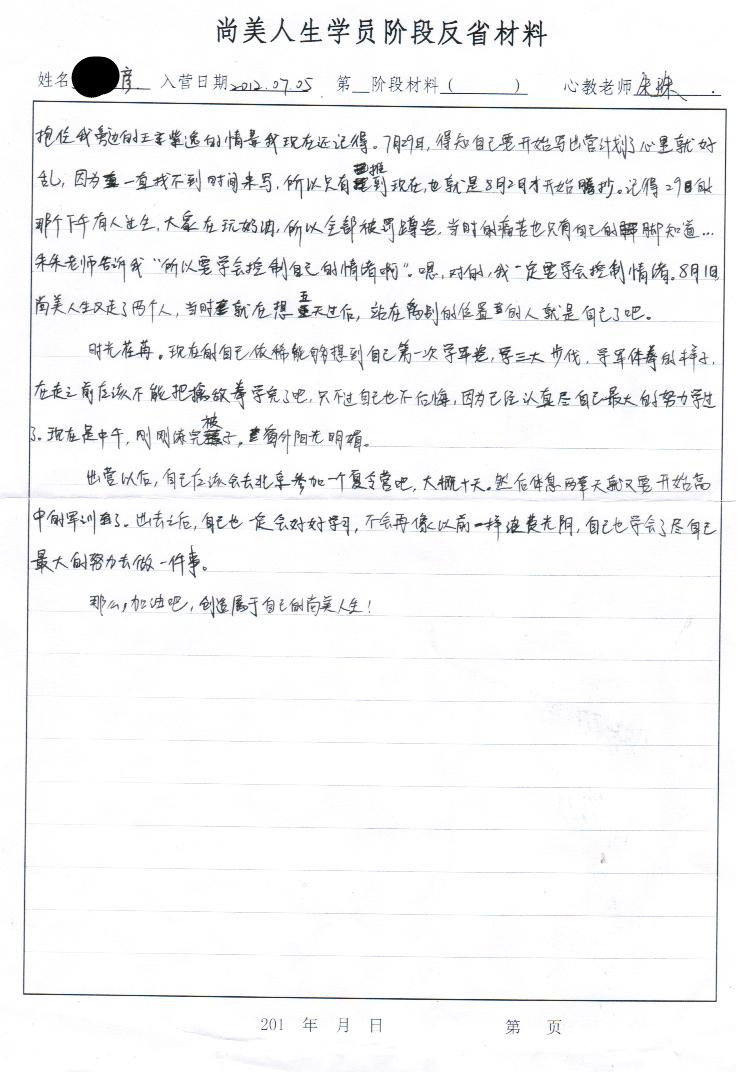 尚美人生学员阶段反省材料
姓名 彦 入营日期2012.07.05 第 阶段材料( ) 心教老师
抱住我旁边的王 的情景我现在还记得。7月29日，得知自己要开始写出营计划了心里就好
乱，因为一直找不到时间来写，所以只有推到现在，也就是8月2日才开始誊抄。记得29日的
那个下午有人过生，大家在玩奶油，所以全部被罚蹲姿，当时的痛苦也只有自己的脚知道…
朱朱老师告诉我“所以要学会控制自己的情绪啊”。嗯，对的，我一定要学会控制情绪。8月1日
尚美人生又走了两个人，当时就在想五天过后，站在离别的位置的人就是自己了吧。
时光荏苒。现在的自己依稀能够想到自己第一次学军姿，学三大步伐，学军体拳的样子，
在走之前应该不能把擒敌拳学完了吧，只不过自己也不后悔，因为已经认真尽自己最大的努力学过
了。现在是中午，刚刚练完被子，窗外阳光明媚。
出营以后，自己应该会去北京参加一个夏令营吧，大概十天。然后休息两三天就又要开始高
中的军训了。出去之后，自己也一定会好好学习，不会再像以前一样浪费光阴，自己也学会了尽自己
最大的努力去做一件事。
那么，加油吧，创造属于自己的尚美人生！
201 年 月 日 第 页